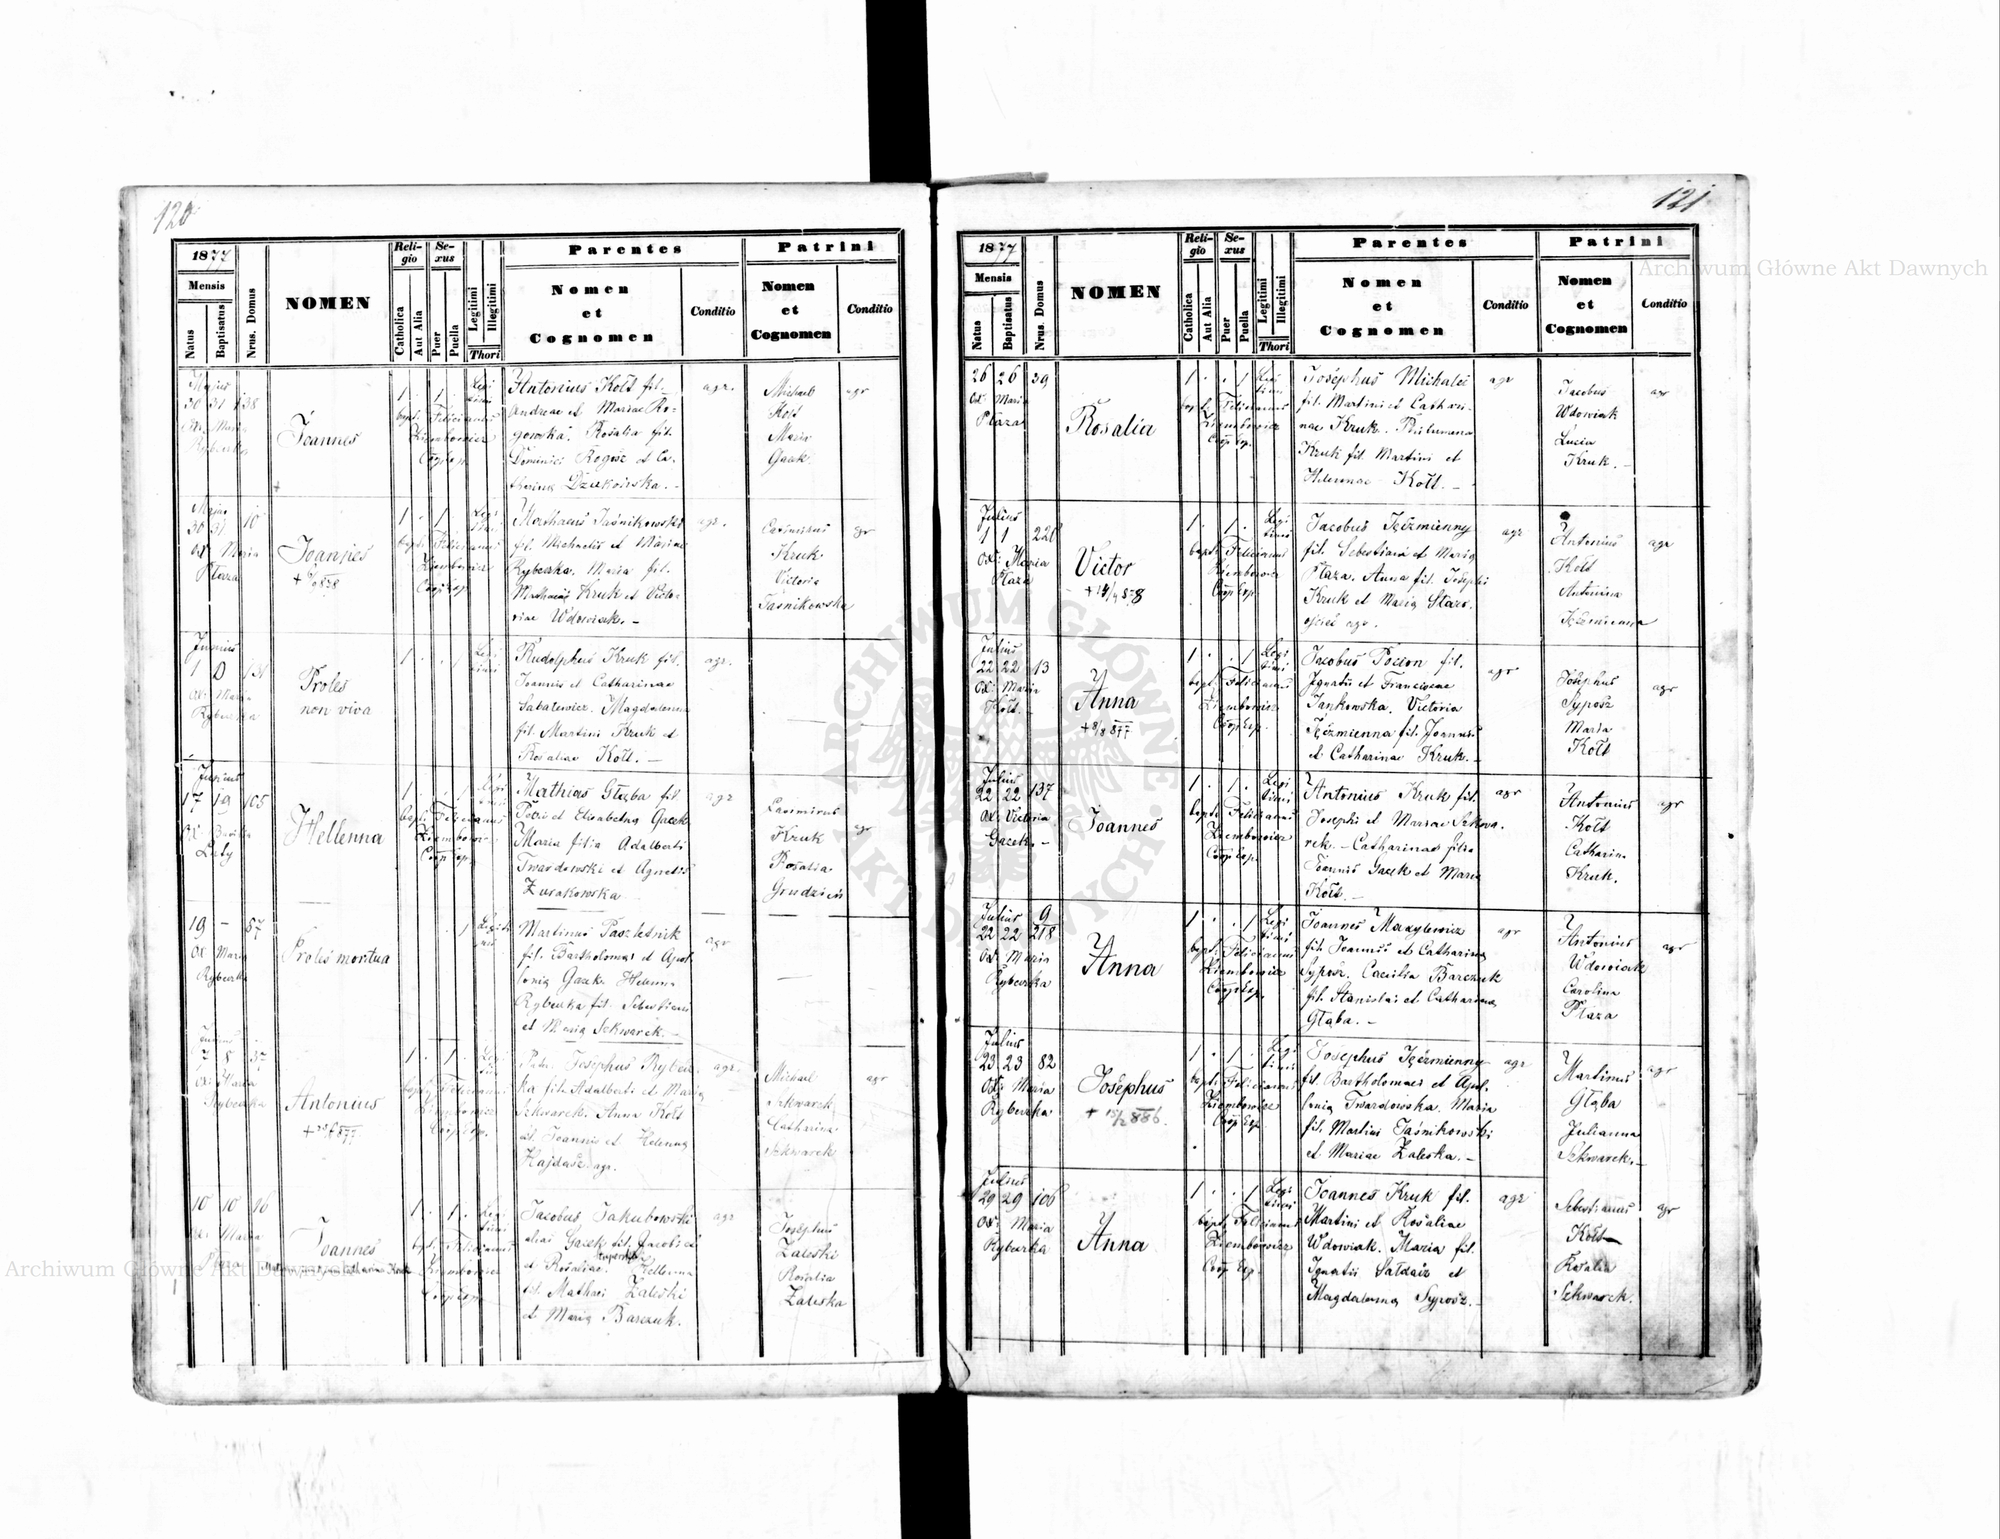 120
1877
Mensis
Natus
Baptisatus
Nrus. Domus
NOMEN
Religio
Catholica
Aut Alia
Sexus
Puer
Puella
Legitimi
Illegitimi
Thori
Parentes
Nomen
et
Cognomen
Conditio
Patrini
Nomen
et
Cognomen
Conditio
Majus
30 31 138
Ox: Maria
Rybczka
Joannes
1 . 1 . Legi
timi
bapt. Felicianus
Ziembowicz
Coop Exp.
Antonius Kołt fil.
Andreae et Mariae Ro-
gowska. Rosalia fil.
Dominici Rogisz et Ca-
tharina
agr.
Michael
Kołt
Maria
Gacek
agr
Majus
30 31 10
Ox: Maria
Płaza
Joannes
1 . 1 . Legi
timi
bapt. Felicianus
Ziembowicz
Coop Exp.
Mathaeus Jaśnikowski
fil. Michaelis et Mariae
Rybczka. Maria fil.
Mathaei Kruk et Victo-
riae Wdowiak. –
agr.
Casimirus
Kruk
Victoria
Jaśnikowska
agr
Junius
1 0 131
Ox: Maria
Rybczka
Proles
non viva
1 . . 1 Legi
timi
Rudolphus Kruk fil.
Joannis et Catharinae
Sabatewicz. Magdalena
fil. Martini Kruk et
Rosaliae Kołt. –
agr.
Junius
17 19 105
Hellenna
1 . . 1 Legi
timi
bapt. Felicianus
Ziembowicz
Coop Exp.
Mathias Głąba fil.
Petri et Elisabetha Gacek
Maria filia Adalberti
Twardowski et Agnetis
Żurakowska
agr
Casimirus
Kruk
Rosalia
Grudzień
agr
19 – 57
Ox: Maria
Rybczka
Proles mortua
Martinus Paszletnik
fil. Bartholomaei et Apol-
lonia Gacek. Helenna
Rybczka fil. Sebastiani
et Maria Szkwarek. –
agr
Junius
7 8 37
Ox: Maria
Rybczka
Antonius
1 . 1 . Legi
timi
bapt. Felicianus
Ziembowicz
Coop Exp.
Patr. Josephus Rybcz-
ka fil. Adalberti et Maria
Szkwarek. Anna Kołt
fil. Joannis et Helenna
Hajdasz agr.
agr.
Michael
Szkwarek
Catharina
Szkwarek
agr
10 10 96
Ox: Maria
Płaza
Joannes
1 . 1 . Legi
timi
bapt. Felicianus
Ziembowicz
Coop Exp.
Jacobus Jakubowski
aliai Gacek fil. Jacobi
et Rosaliae. Hellenna
fil. Mathaei Zaleski
et Maria Barczuk.
agr
Josephus
Zaleski
Rosalia
Zaleska
121
1877
Mensis
Natus
Baptisatus
Nrus. Domus
NOMEN
Religio
Catholica
Aut Alia
Sexus
Puer
Puella
Legitimi
Illegitimi
Thori
Parentes
Nomen
et
Cognomen
Conditio
Patrini
Nomen
et
Cognomen
Conditio
26 26 39
Ox: Maria
Płaza
Rosalia
1 . . 1 Legi
timi
bapt. Felicianus
Ziembowicz
Coop Exp.
Josephus Michalec
fil. Martini et Cathari-
nae Kruk. Philumena
Kruk fil. Martini et
Helennae Kołt. –
agr
Jacobus
Wdowiak
Lucia
Kruk. –
agr
Julius
1 1 220
Ox: Maria
Płaza
Victor
1 . 1 . Legi
timi
bapt. Felicianus
Ziembowicz
Coop Exp.
Jacobus Jęćzmienny
fil. Sebastiani et Maria
Płaza. Anna fil. Josephi
Kruk et Maria Staro-
agr.
agr
Antonius
Kołt
Antonina
Jęćzmienna
agr
Julius
22 22 13
Ox: Maria
Kołt. –
Anna
+ 8/8 877
1 . . 1 Legi
timi
bapt. Felicianus
Ziembowicz
Coop Exp.
Jacobus Pocion fil.
Ignatii et Franciscae
Jankowska. Victoria
Jęćzmienna fil. Joannis
et Catharinae Kruk. –
agr
Josephus
Syposz
Maria
Kołt
agr
Julius
22 22 137
Ox: Victoria
Gacek. –
Joannes
1 . 1 . Legi
timi
bapt. Felicianus
Ziembowicz
Coop Exp.
Antonius Kruk fil.
Josephi et Mariae Szkwa-
rek. – Catharinae filia
Joannis Gacek et Maria
Kołt. –
agr
Antonius
Kołt
Catharina
Kruk.
agr
Julius 9
22 22 218
Ox: Maria
Rybczka
Anna
1 . . 1 Legi
timi
bapt. Felicianus
Ziembowicz
Coop Exp.
Joannes Maxylewicz
fil. Joannis et Catharina
Syposz. Caecilia Barczuk
fil. Stanislai et Catharina
Głąba. –
agr
Antonius
Wdowiak
Carolina
Płaza
agr
Julius
23 23 82
Ox: Maria
Rybczka
Josephus
+ 15/2 886.
1 . 1 . Legi
timi
bapt. Felicianus
Ziembowicz
Coop Exp.
Josephus Jęćzmienny
fil. Bartholomaei et Apol-
lonia Twardowska. Maria
fil. Martini Jaśnikowski
et Mariae Zaleska. –
agr
Martinus
Głąba
Julianna
Szkwarek. –
agr
Julius
29 29 106
Ox: Maria
Rybczka
Anna
1 . . 1 Legi
timi
bapt. Felicianus
Ziembowicz
Coop Exp.
Joannes Kruk fil.
Martini et Rosaliae
Wdowiak. Maria fil.
Ignatii Sałdasz et
Magdalenna Syposz. –
agr
Sebastianus
Kołt
Rosalia
Szkwarek.
agr
Archiwum Główne Akt Dawnych
Archiwum Główne Akt Dawnych
ARCHIWUM GŁÓWNE AKT DAWNYCH